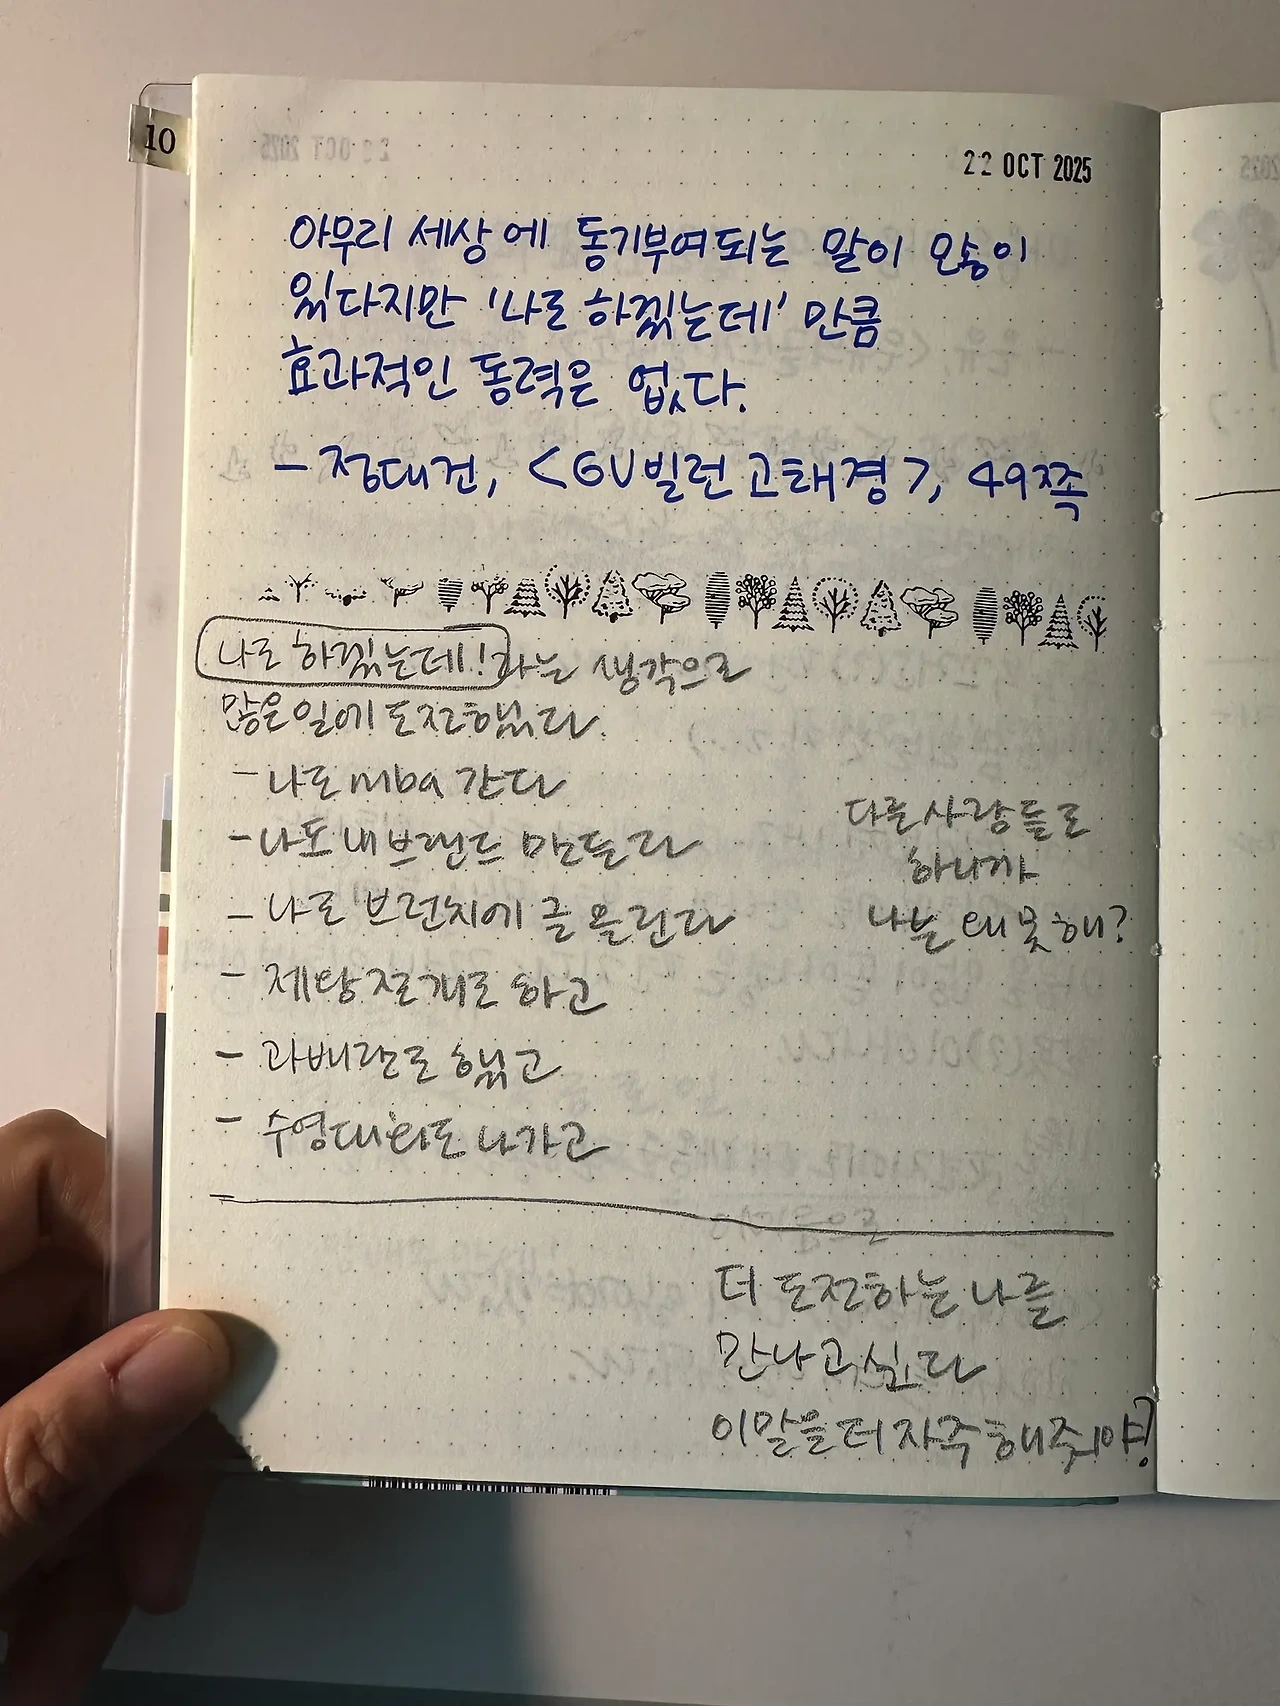 10
22 OCT 2025
아무리 세상에 동기부여되는 말이 많이
있다지만 '나도 하겠는데' 만큼
효과적인 동력은 없다.
- 정대건, <GV빌런 고태경>, 49쪽
나도 하겠는데! 라는 생각으로
많은 일에 도전했다.
- 나도 mba 간다
- 나도 내 브랜드 만든다
- 나도 브런치에 글 올린다
다른 사람들도
하니까
나는 왜 못해?
- 제빵 도 하고
- 도 했고
- 수영대회도 나가고
더 도전하는 나를
만나고 싶다
이 말을 더 자주 해줘야!